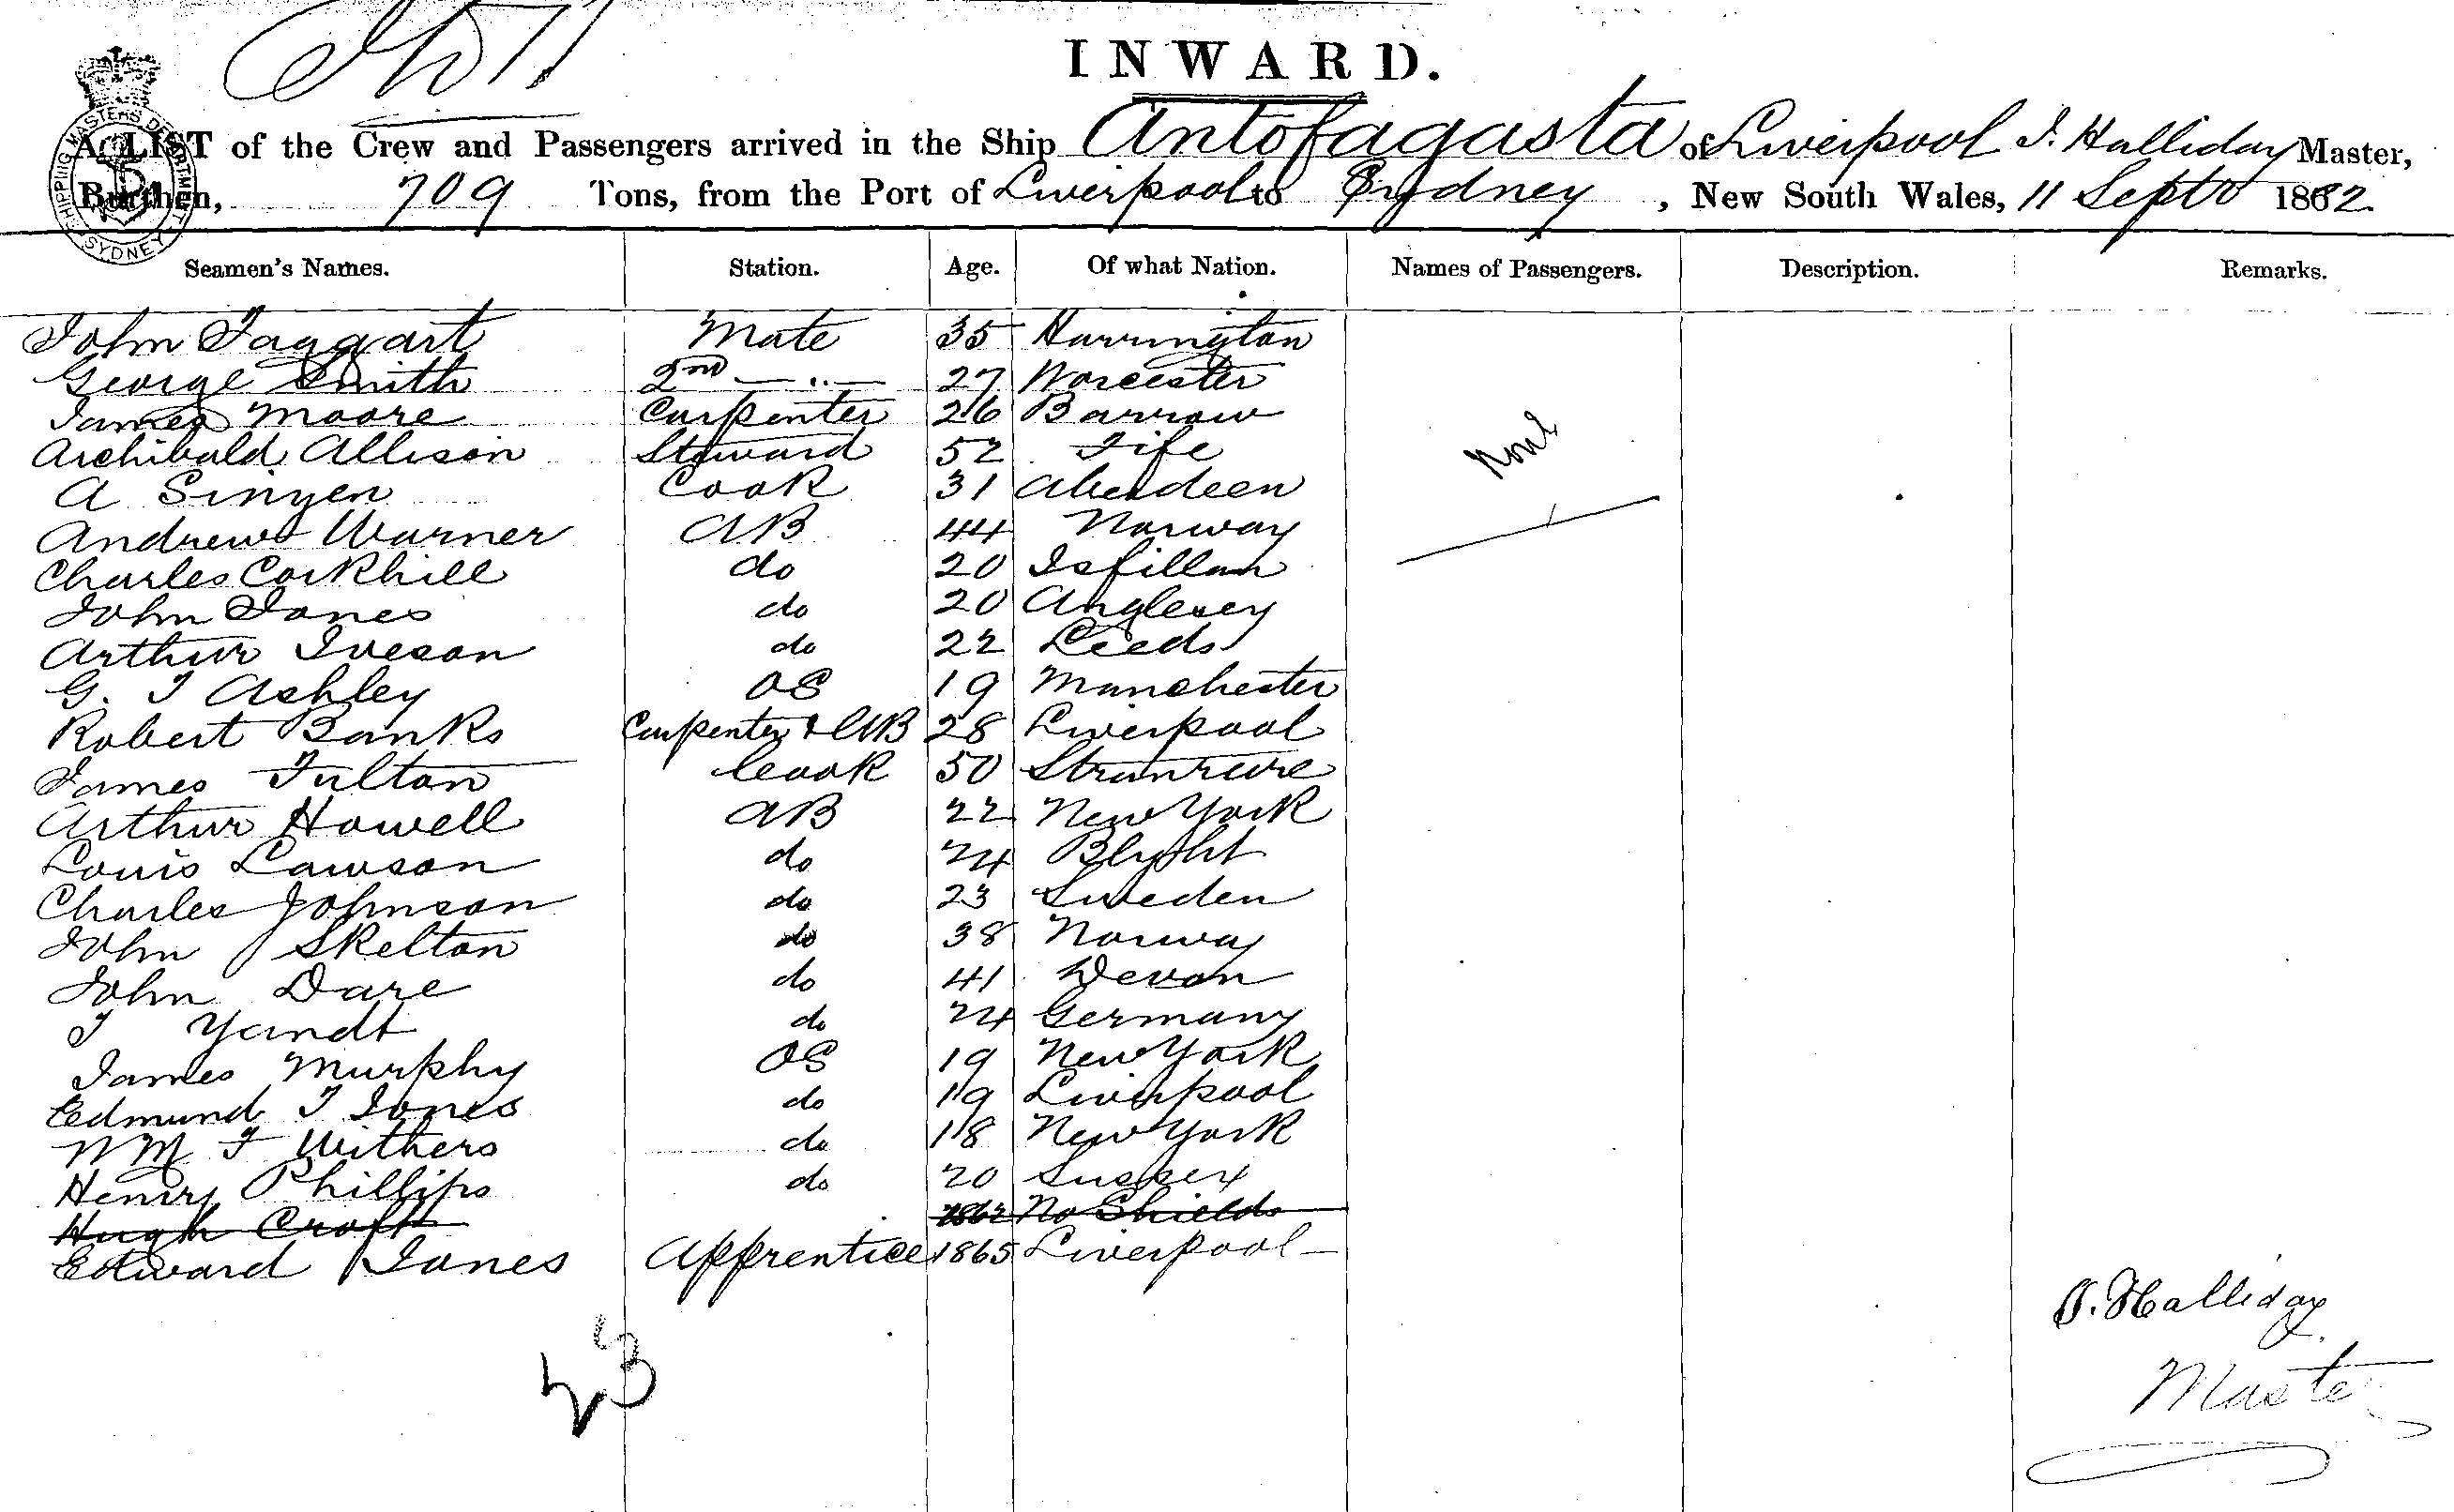 INWARD.
A LIST of the Crew and Passengers arrived in the Ship Antofagasta of Liverpool J. Halliday Master,
Burthen, 709 Tons, from the Port of Liverpool to Sydney, New South Wales, 11 Septr 1882
SHIPPING MASTERS DEPARTMENT SYDNEY
Seamen's Names. Station. Age. Of what Nation. Names of Passengers. Description. Remarks.
John Taggart Mate 35 Harrington
George Smith 2nd — " — 27 Worcester
James Moore Carpenter 26 Barrow
Archibald Allison Steward 52 Fife
None
A Sinyen Cook 31 Aberdeen
Andrew Warner AB 44 Norway
Charles Corkhill do 20
John Jones do 20 Anglesey
Arthur Iveson do 22 Leeds
G. J Ashley OS 19 Manchester
Robert Banks Carpenter & AB 28 Liverpool
James Fulton Cook 50 Stranrare
Arthur Howell AB 22 New York
Louis Lawson do 24 Blyth
Charles Johnson do 23 Sweden
John Skelton do 38 Norway
John Dare do 41 Devon
J Yandt do 24 Germany
James Murphy OS 19 New York
Edmund J Jones do 19 Liverpool
Wm F Withers do 18 New York
Henry Phillips do 20 Sussex
Hugh Croft 1862 No Shields
Edward Jones Apprentice 1865 Liverpool
J. Halliday
Master
23